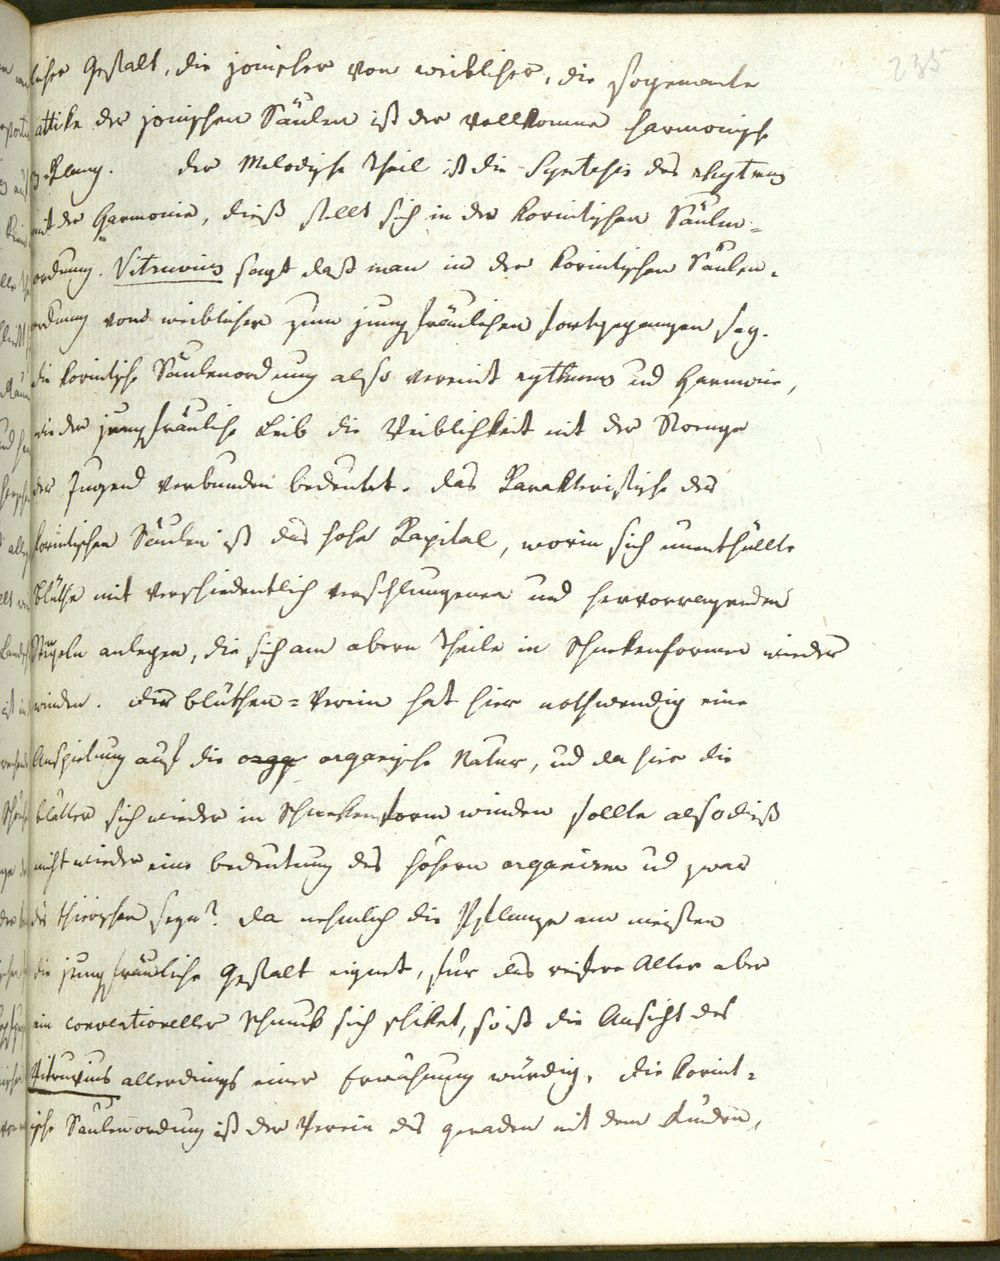 235
licher Gestalt, die jonischer von weiblicher, die sogenante
attike der jonischen Säulen ist der vollkomne harmonische
Klang. der Melodische Theil ist die Syntesis des rhytmus
mit der Harmonie, dieß stellt sich in der korintischen Säulen-
ordnung. Vitruvius sagt daß man in der korintischen Säulen-
ordnung vom weiblicher zum jungfräulichen fortgegangen sey.
die korintische Säulenordnung also vereint rythmus und Harmonie,
wie der jungfräuliche Leib die Weiblichkeit mit der Strenge
der Jugend verbunden bedeutet. das Karakteristische der
korintischen Säulen ist das hohe Kapital, worin sich unenthüllte
Blüthe mit verschiedentlich verschlungenen und hervorragenden
Stengeln anlegen, die sich am obern Theile in Schnekenformen wieder
winden. der blüthen-Verein hat hier nothwendig eine
Anspielung auf die orgg organische Natur, und da hier die
blätter sich wieder in Schnekenform winden sollte also dieß
nicht wieder eine bedeutung des höhern organism ud zwar
des thierischen seyn? da nehmlich die Pflanze am meisten
die jungfräuliche Gestalt eignet, für das reifere Alter aber
ein conventioneller Schmuk sich schiket, so ist die Ansicht des
Vitruvius allerdings einer Erwähnung würdig. die korint-
ische Säulenordnung ist der Verein des geraden mit dem Runden,